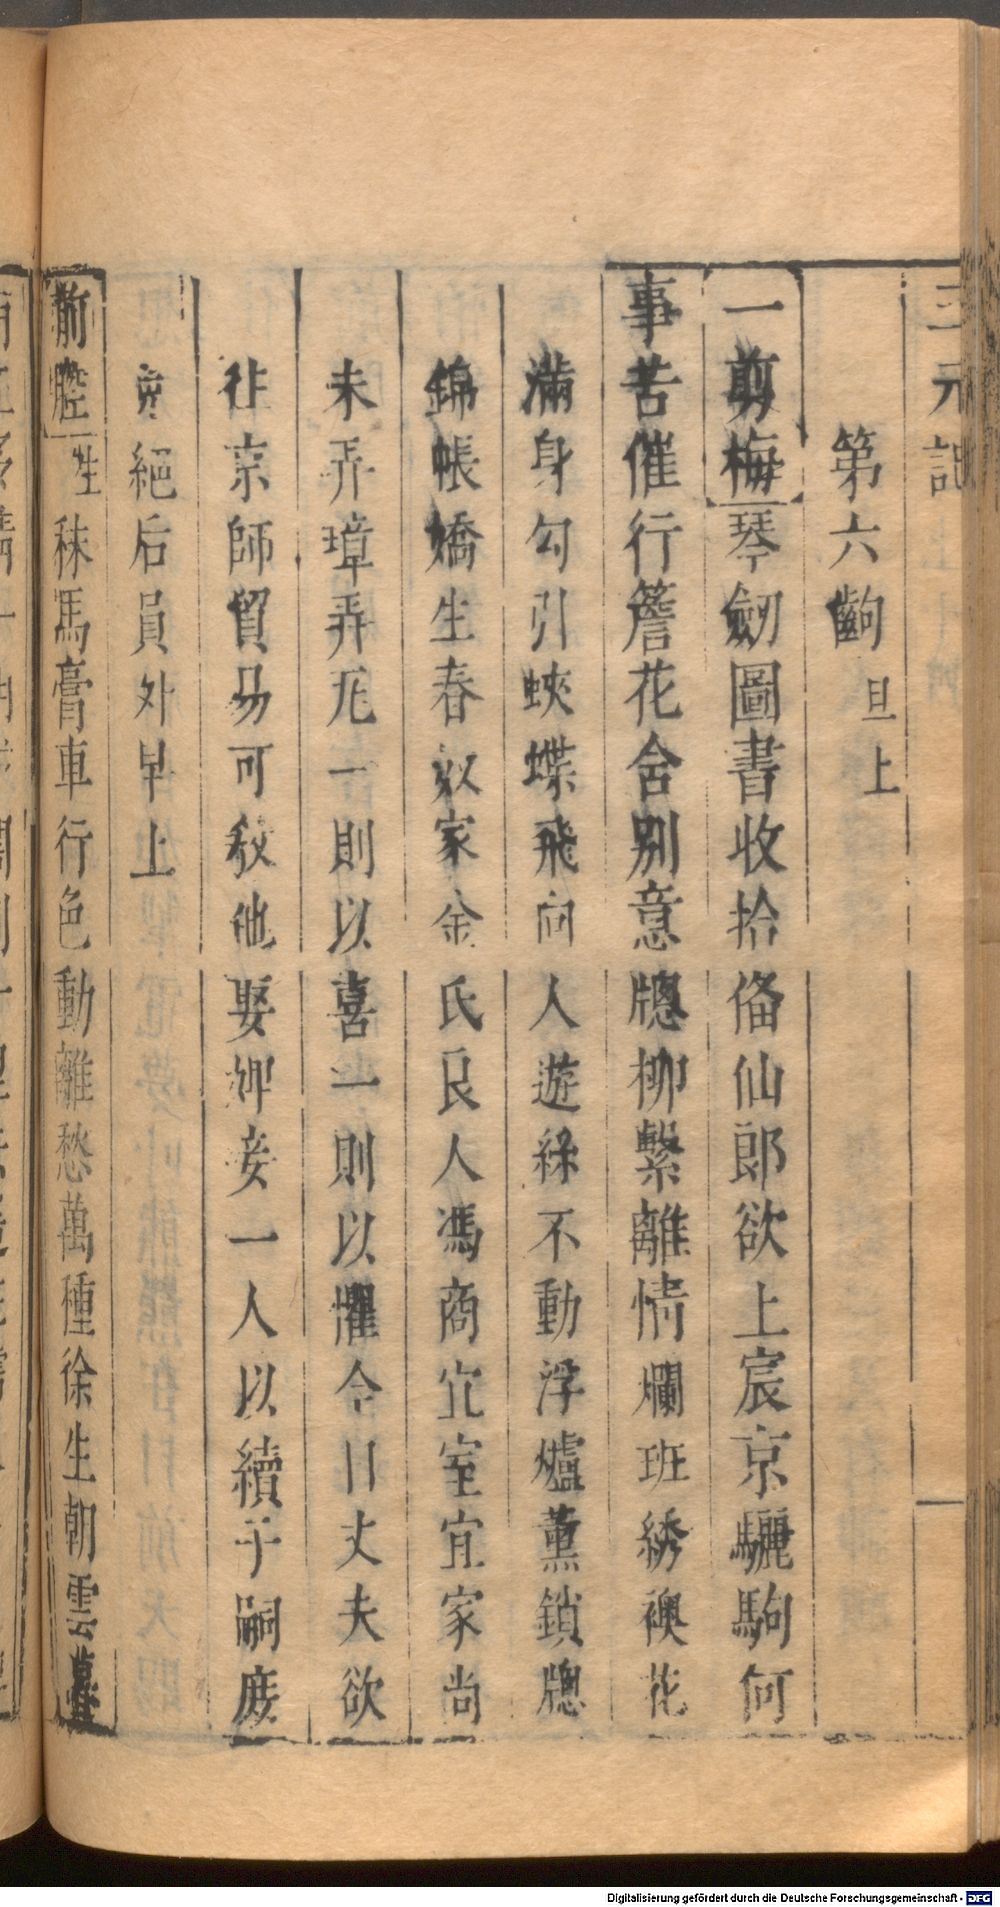 三元記
第六齣 旦上
一剪梅 琴劒圖書收拾俻仙郎欲上宸京驪駒何
事苦催行簷花舍别意牕柳繫離情 爛班綉襖花
滿身勾引蛺蝶飛向人遊絲不動浮爐薰鎖牕
錦帳嬌生春奴家金氏良人馮商宜室宜家尚
未弄璋弄瓦一則以喜一則以懼今日丈夫欲
往京師貿易可敎他娶婢妾一人以續子嗣庻
絕后員外早上
前腔 生 秣馬膏車行色動離愁萬種徐生朝雲暮
Digitalisierung gefördert durch die Deutsche Forschungsgemeinschaft - DFG